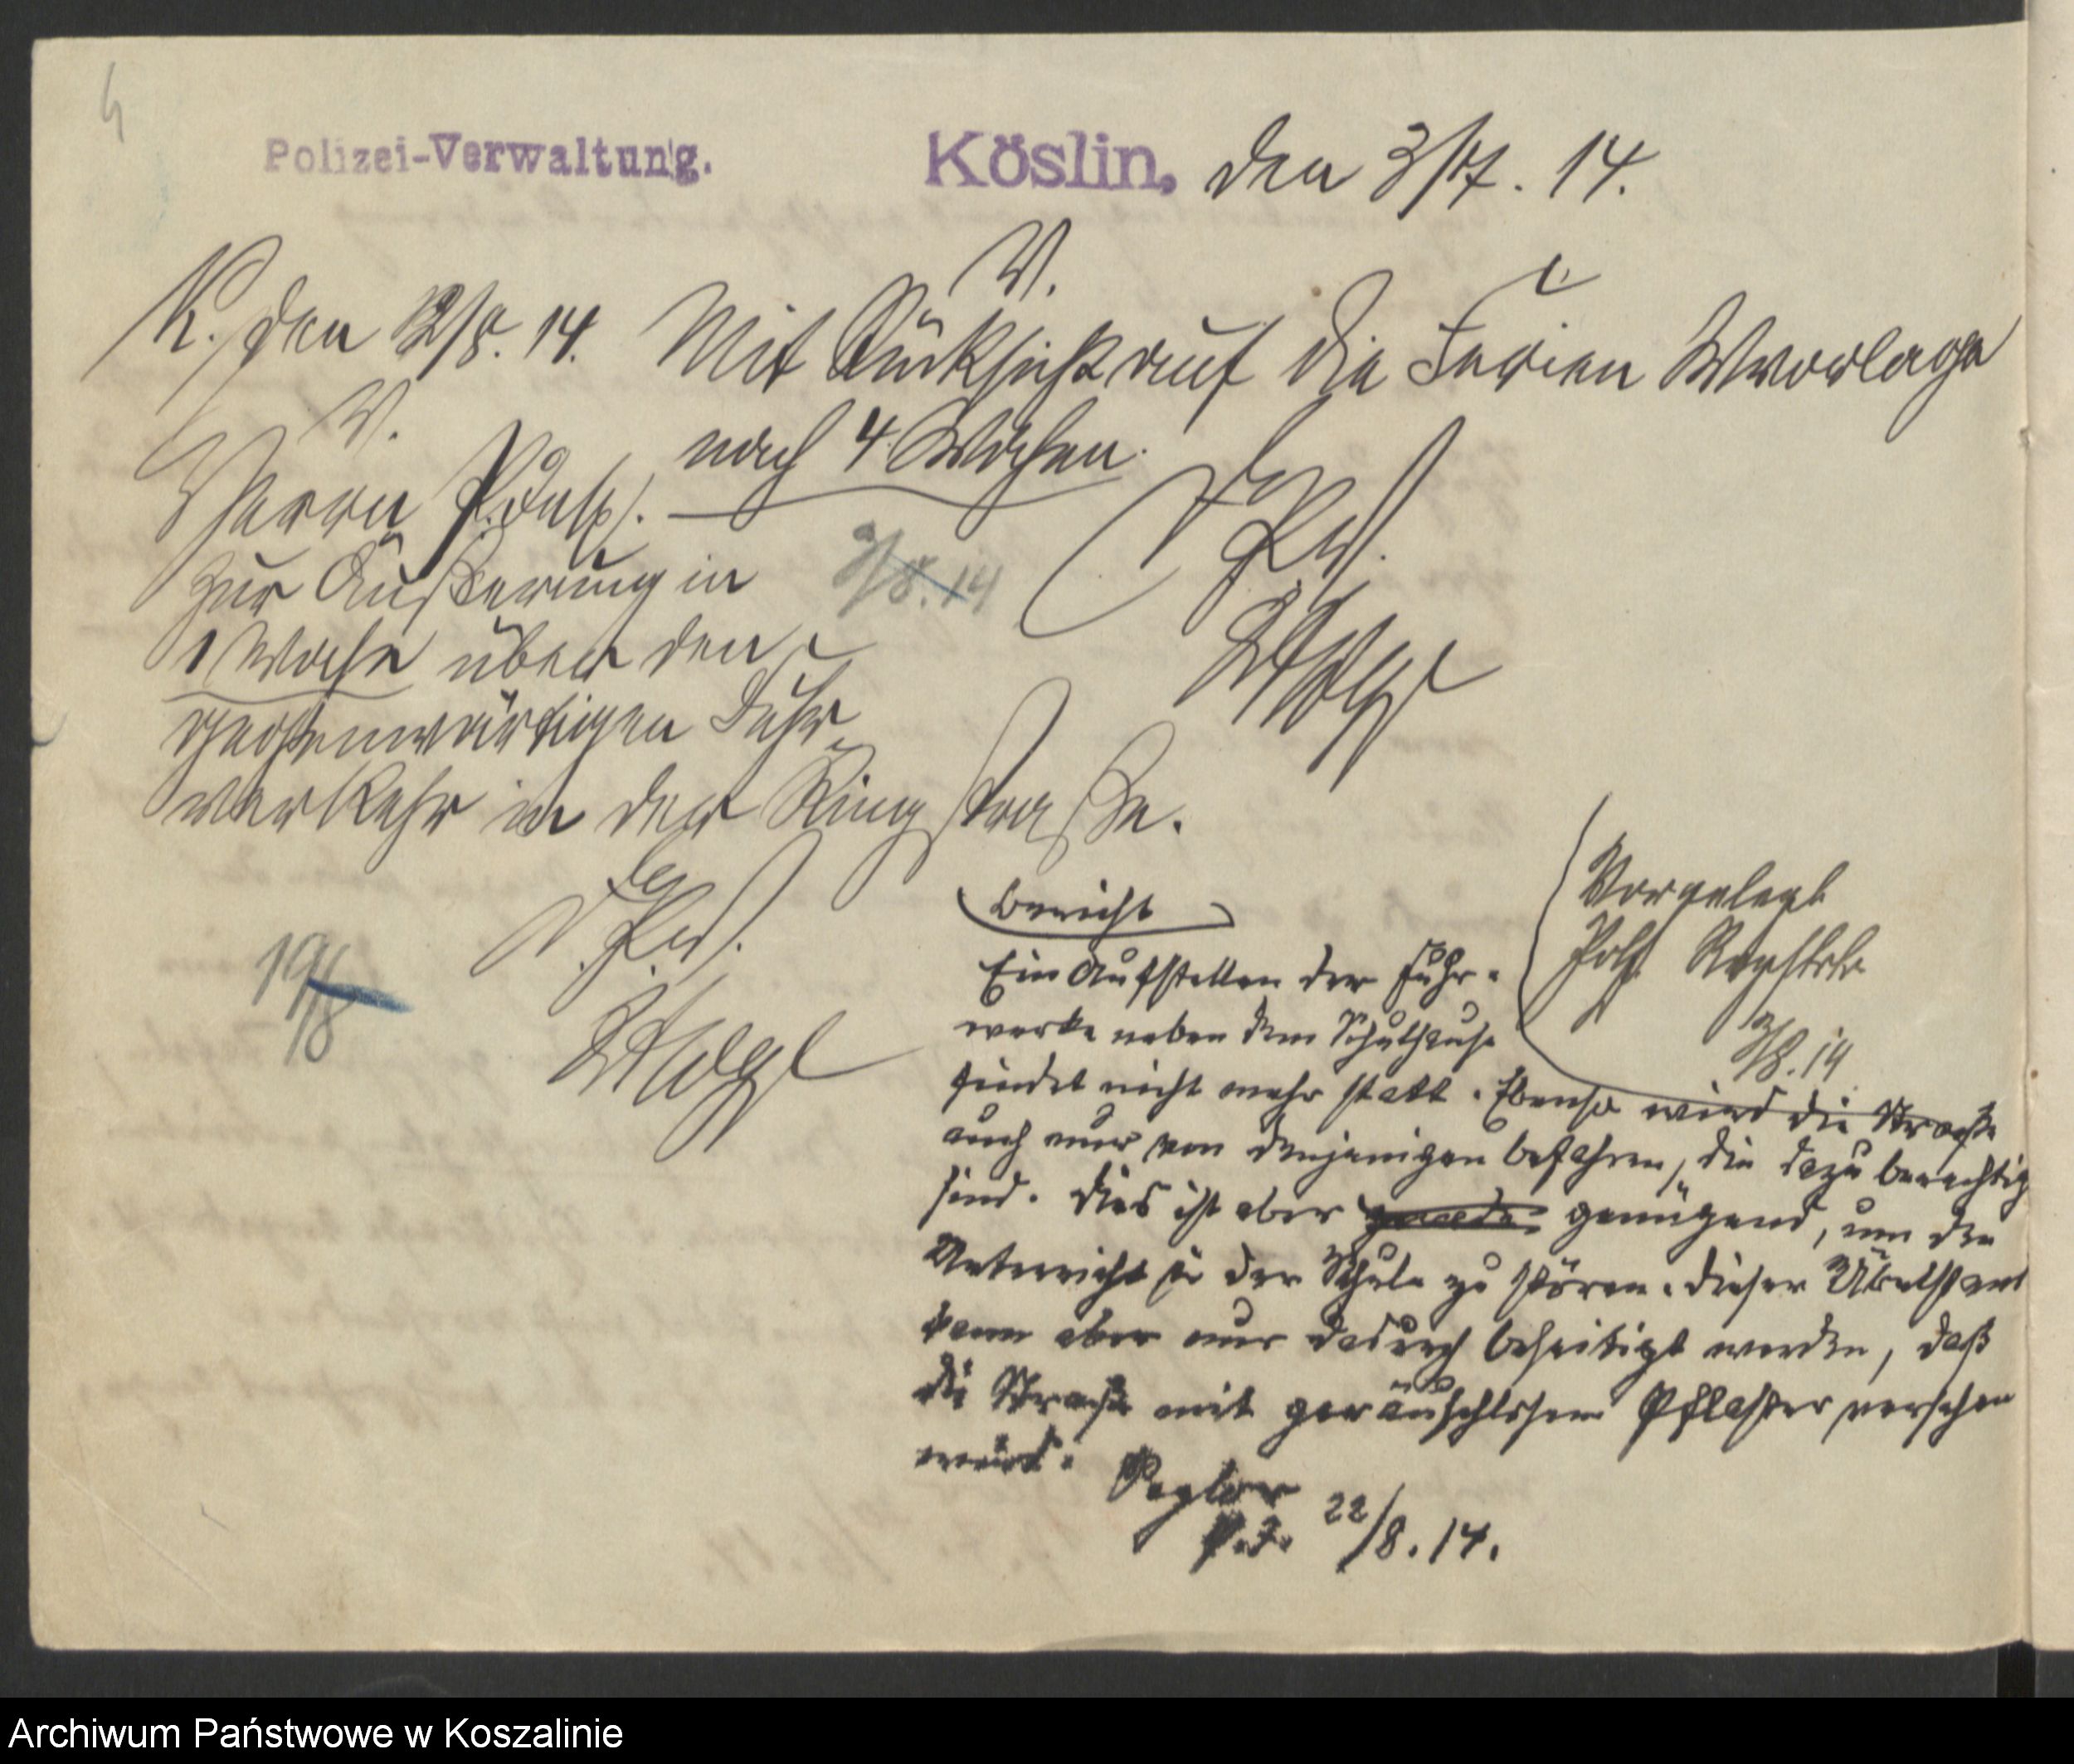 4
Polizei-Verwaltung.
Köslin, den 3/7. 14.
V.
Mit Rücksicht auf die Ferien Wvorlage
nach 4 Wochen.
3/8.14
K. den 12/8. 14.
V.
Herrn P. Insp.
zur Äußerung in
1 Woche über den
gegenwärtigen Fuhr
verkehr in der Ringstraße.
19/8
Vorgelegt
Pol. Registr.
3/8.14
Bericht
Ein Aufstellen der Fuhr-
werke neben dem Schulhause
findet nicht mehr statt. Ebenso wird die Straße
auch nur von denjenigen befahren, die dazu berechtig
sind. Dies ist aber genügend, um den
Unterricht in der Schule zu stören. Dieser Übelstand
kann aber nur dadurch beseitigt werden, daß
die Straße mit geräuschlosem Pflaster versehen
wird.
P.I. 22/8.14.
Archiwum Państwowe w Koszalinie